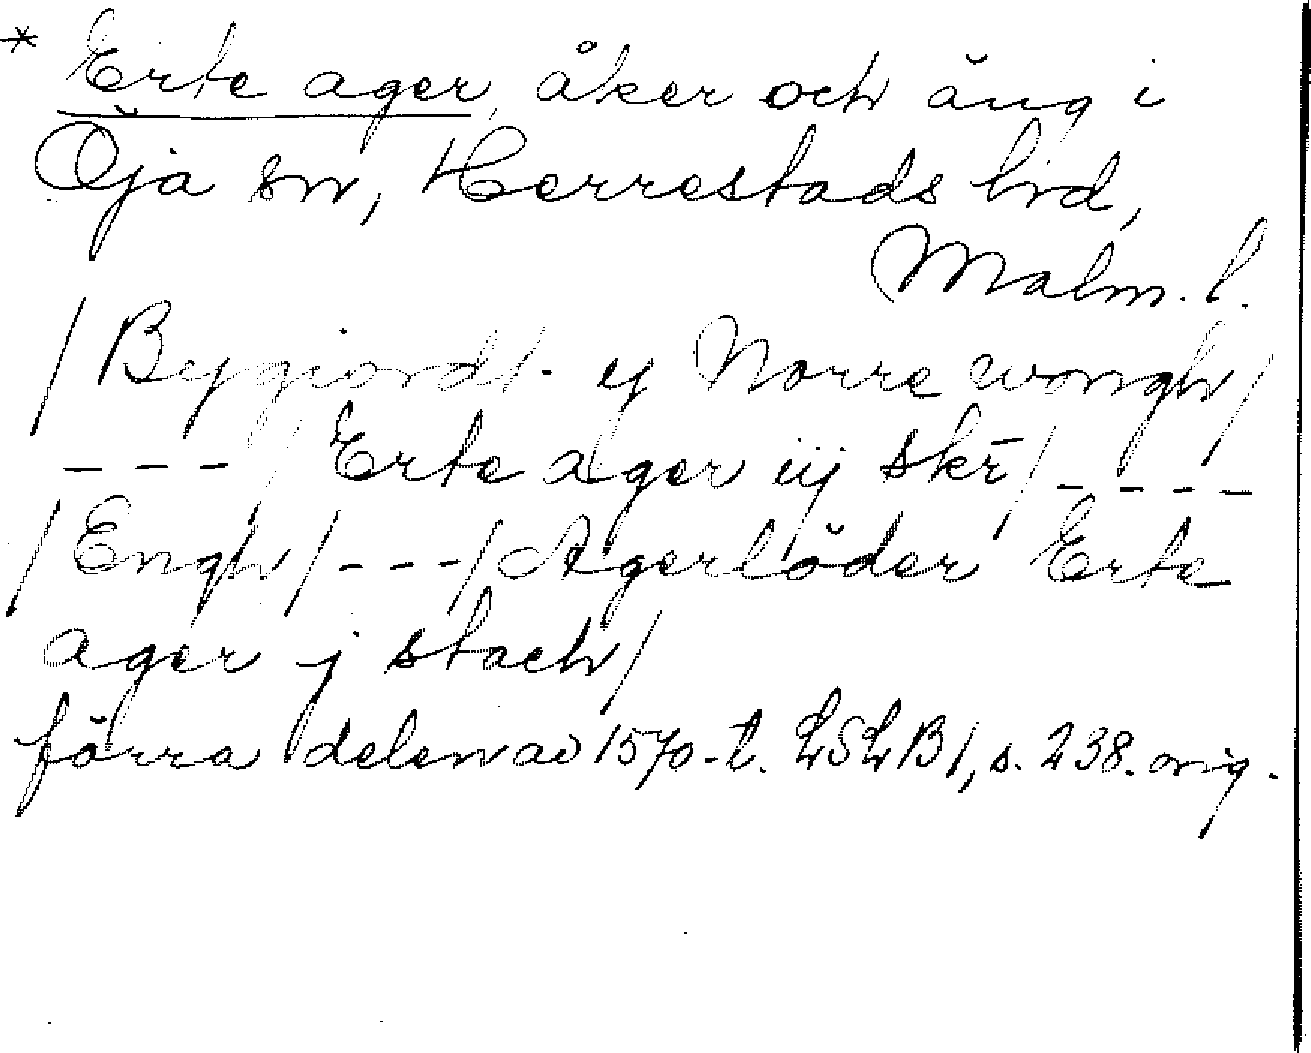 * Erte ager, åker och äng i
Öja sn, Herrestads hd,
Malm. l.
/ Bygiordt. ij Norre wongh /
- - - / Erte ager iij skr̄ / - - - -
/ Engh / - - - / Agerlöder Erte
ager j stach /
förra delen av 1570-t. LSLB1, s. 238. orig.